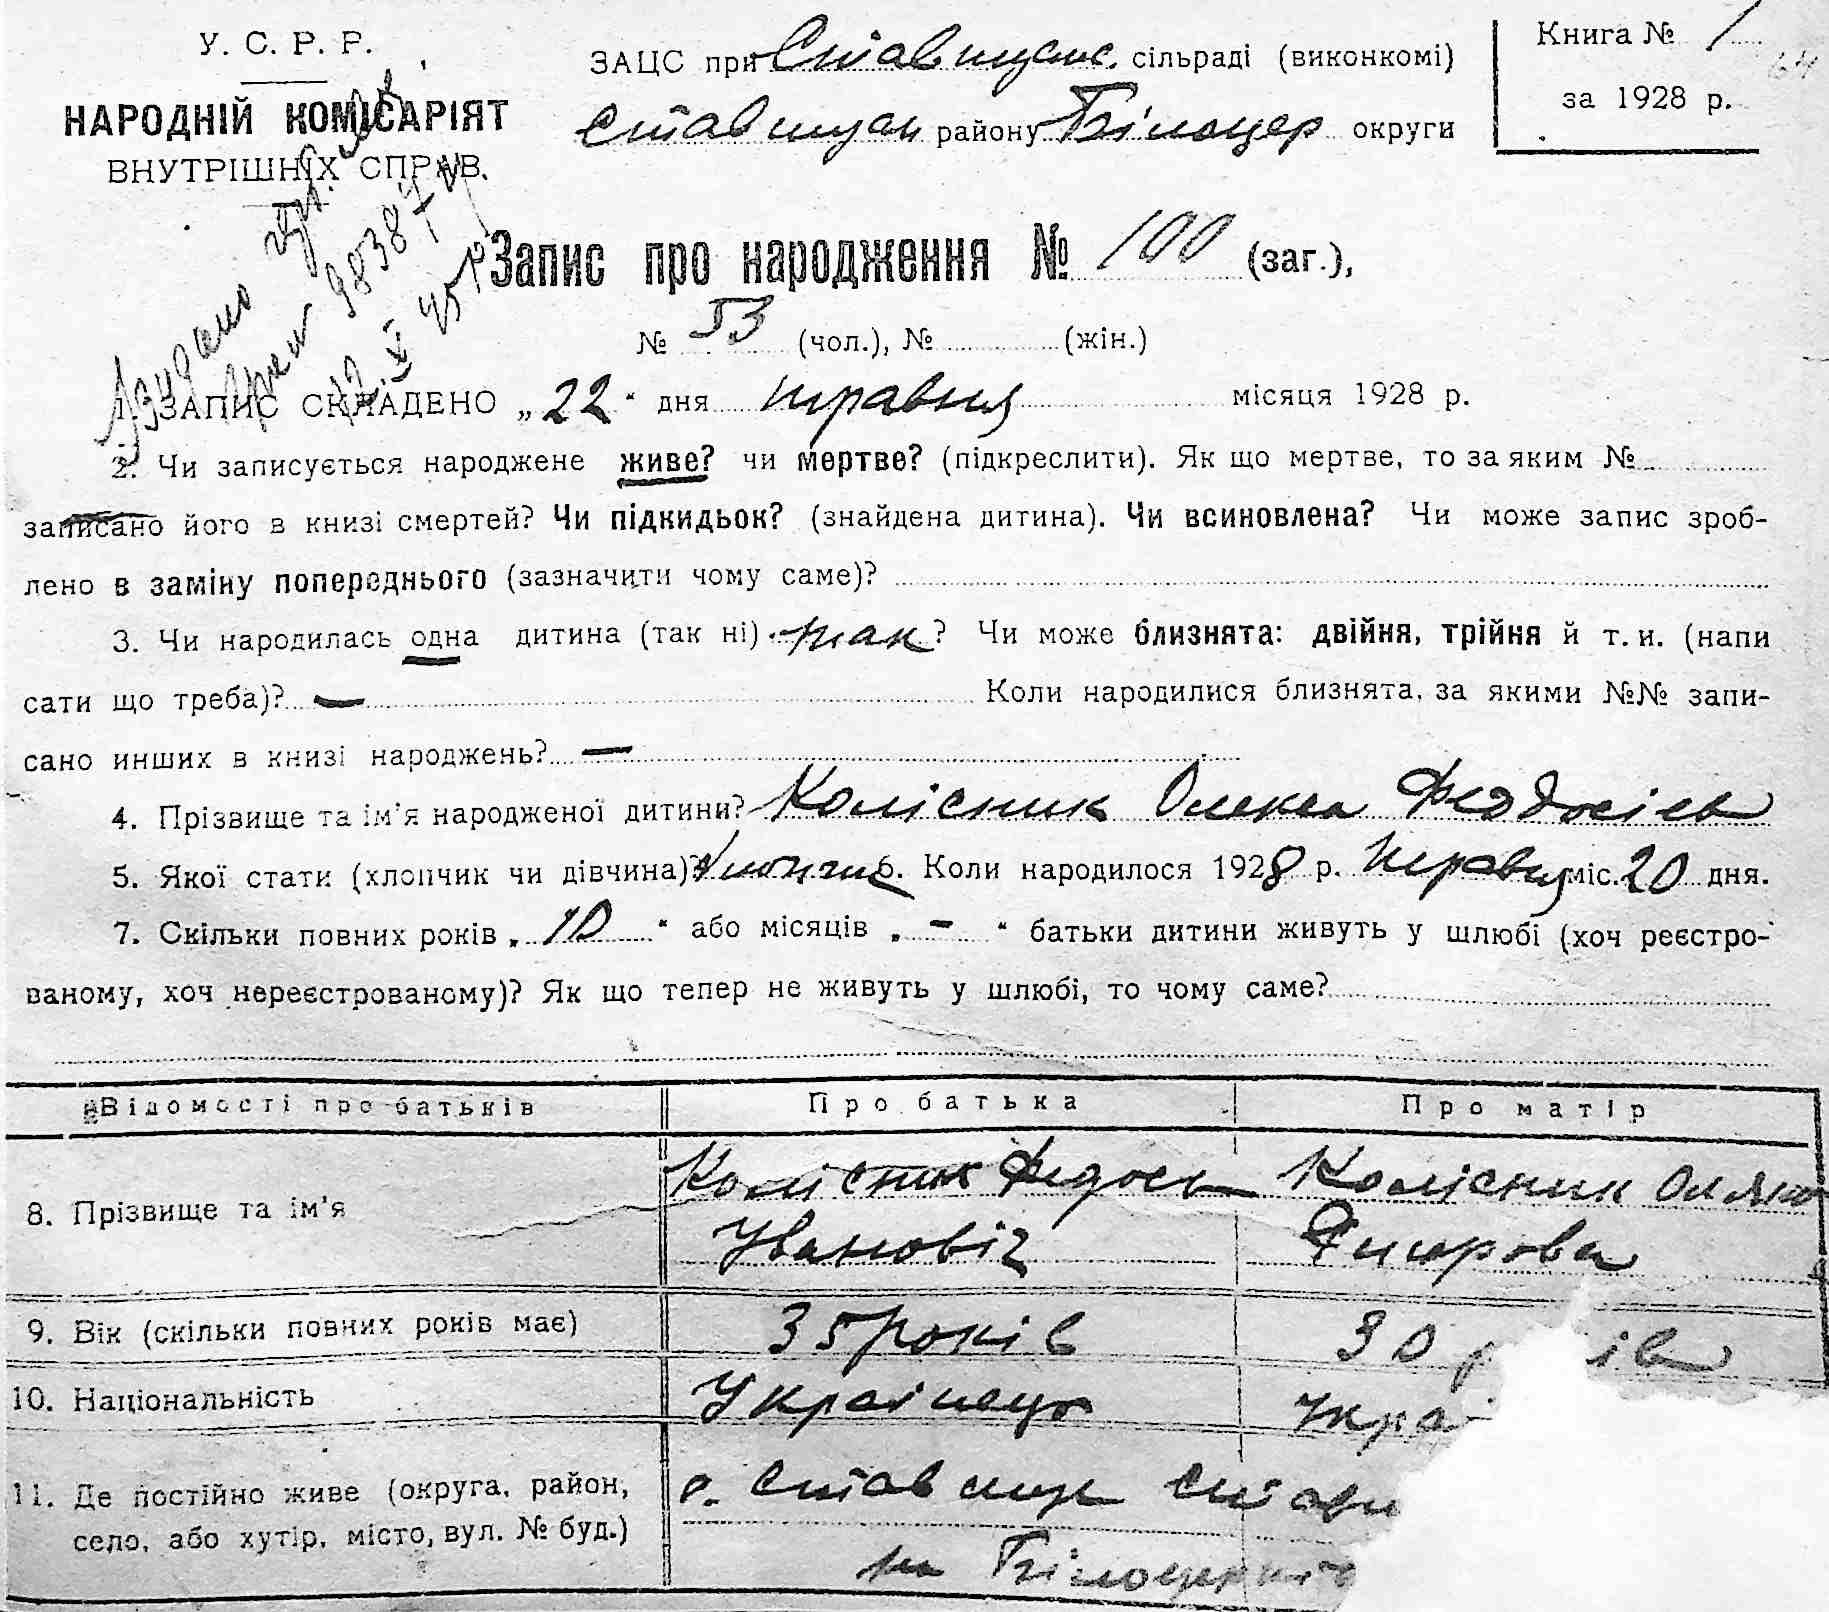 У. С. Р. Р.
НАРОДНІЙ КОМІСАРІЯТ
ВНУТРІШНІХ СПРАВ.
ЗАЦС при Ставищанс. сільраді (виконкомі)
Ставищан району Білоцер округи
Книга № 1
64
за 1928 р.
Видано
98387
12. V 45 р.
Запис про народження № 100 (заг.),
№ 53 (чол.), № (жін.)
1. ЗАПИС СКЛАДЕНО „22“ дня травня місяця 1928 р.
2. Чи записується народжене живе? чи мертве? (підкреслити). Як що мертве, то за яким №
записано його в книзі смертей? Чи підкидьок? (знайдена дитина). Чи всиновлена? Чи може запис зроб-
лено в заміну попереднього (зазначити чому саме)?
3. Чи народилась одна дитина (так ні) так? Чи може близнята: двійня, трійня й т. и. (напи
сати що треба)? — Коли народилися близнята, за якими №№ запи-
сано инших в книзі народжень? —
4. Прізвище та ім'я народженої дитини? Колісник Олекса Феодосіев
5. Якої стати (хлопчик чи дівчина)? Хлопчик 6. Коли народилося 1928 р. Травня міс. 20 дня.
7. Скільки повних років „10“ або місяців „-“ батьки дитини живуть у шлюбі (хоч реєстро-
ваному, хоч нереєстрованому)? Як що тепер не живуть у шлюбі, то чому саме?
Відомості про батьків Про батька Про матір
8. Прізвище та ім'я Колісник Федось Колісник
Ивановіч
9. Вік (скільки повних років має) 35 років 30 р ів
10. Національність Українець Укра
11. Де постійно живе (округа, район, с. Ставище Стави
село, або хутір, місто, вул. № буд.) на Білоцерків